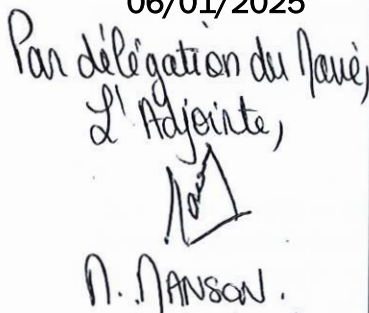 06/01/2025
Par délégation du Maire,
L'Adjointe,
M. MANSON.